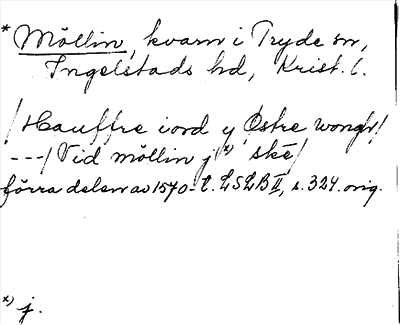 * Möllin, kvarn i Tryde sn,
Ingelstads hd, Krist. l.
/Hauffre iord y Østre wongh/
---/ Vid möllin j x) skē/
förra delen av 1570-t. LSLB II, s. 324. orig.
x) j.